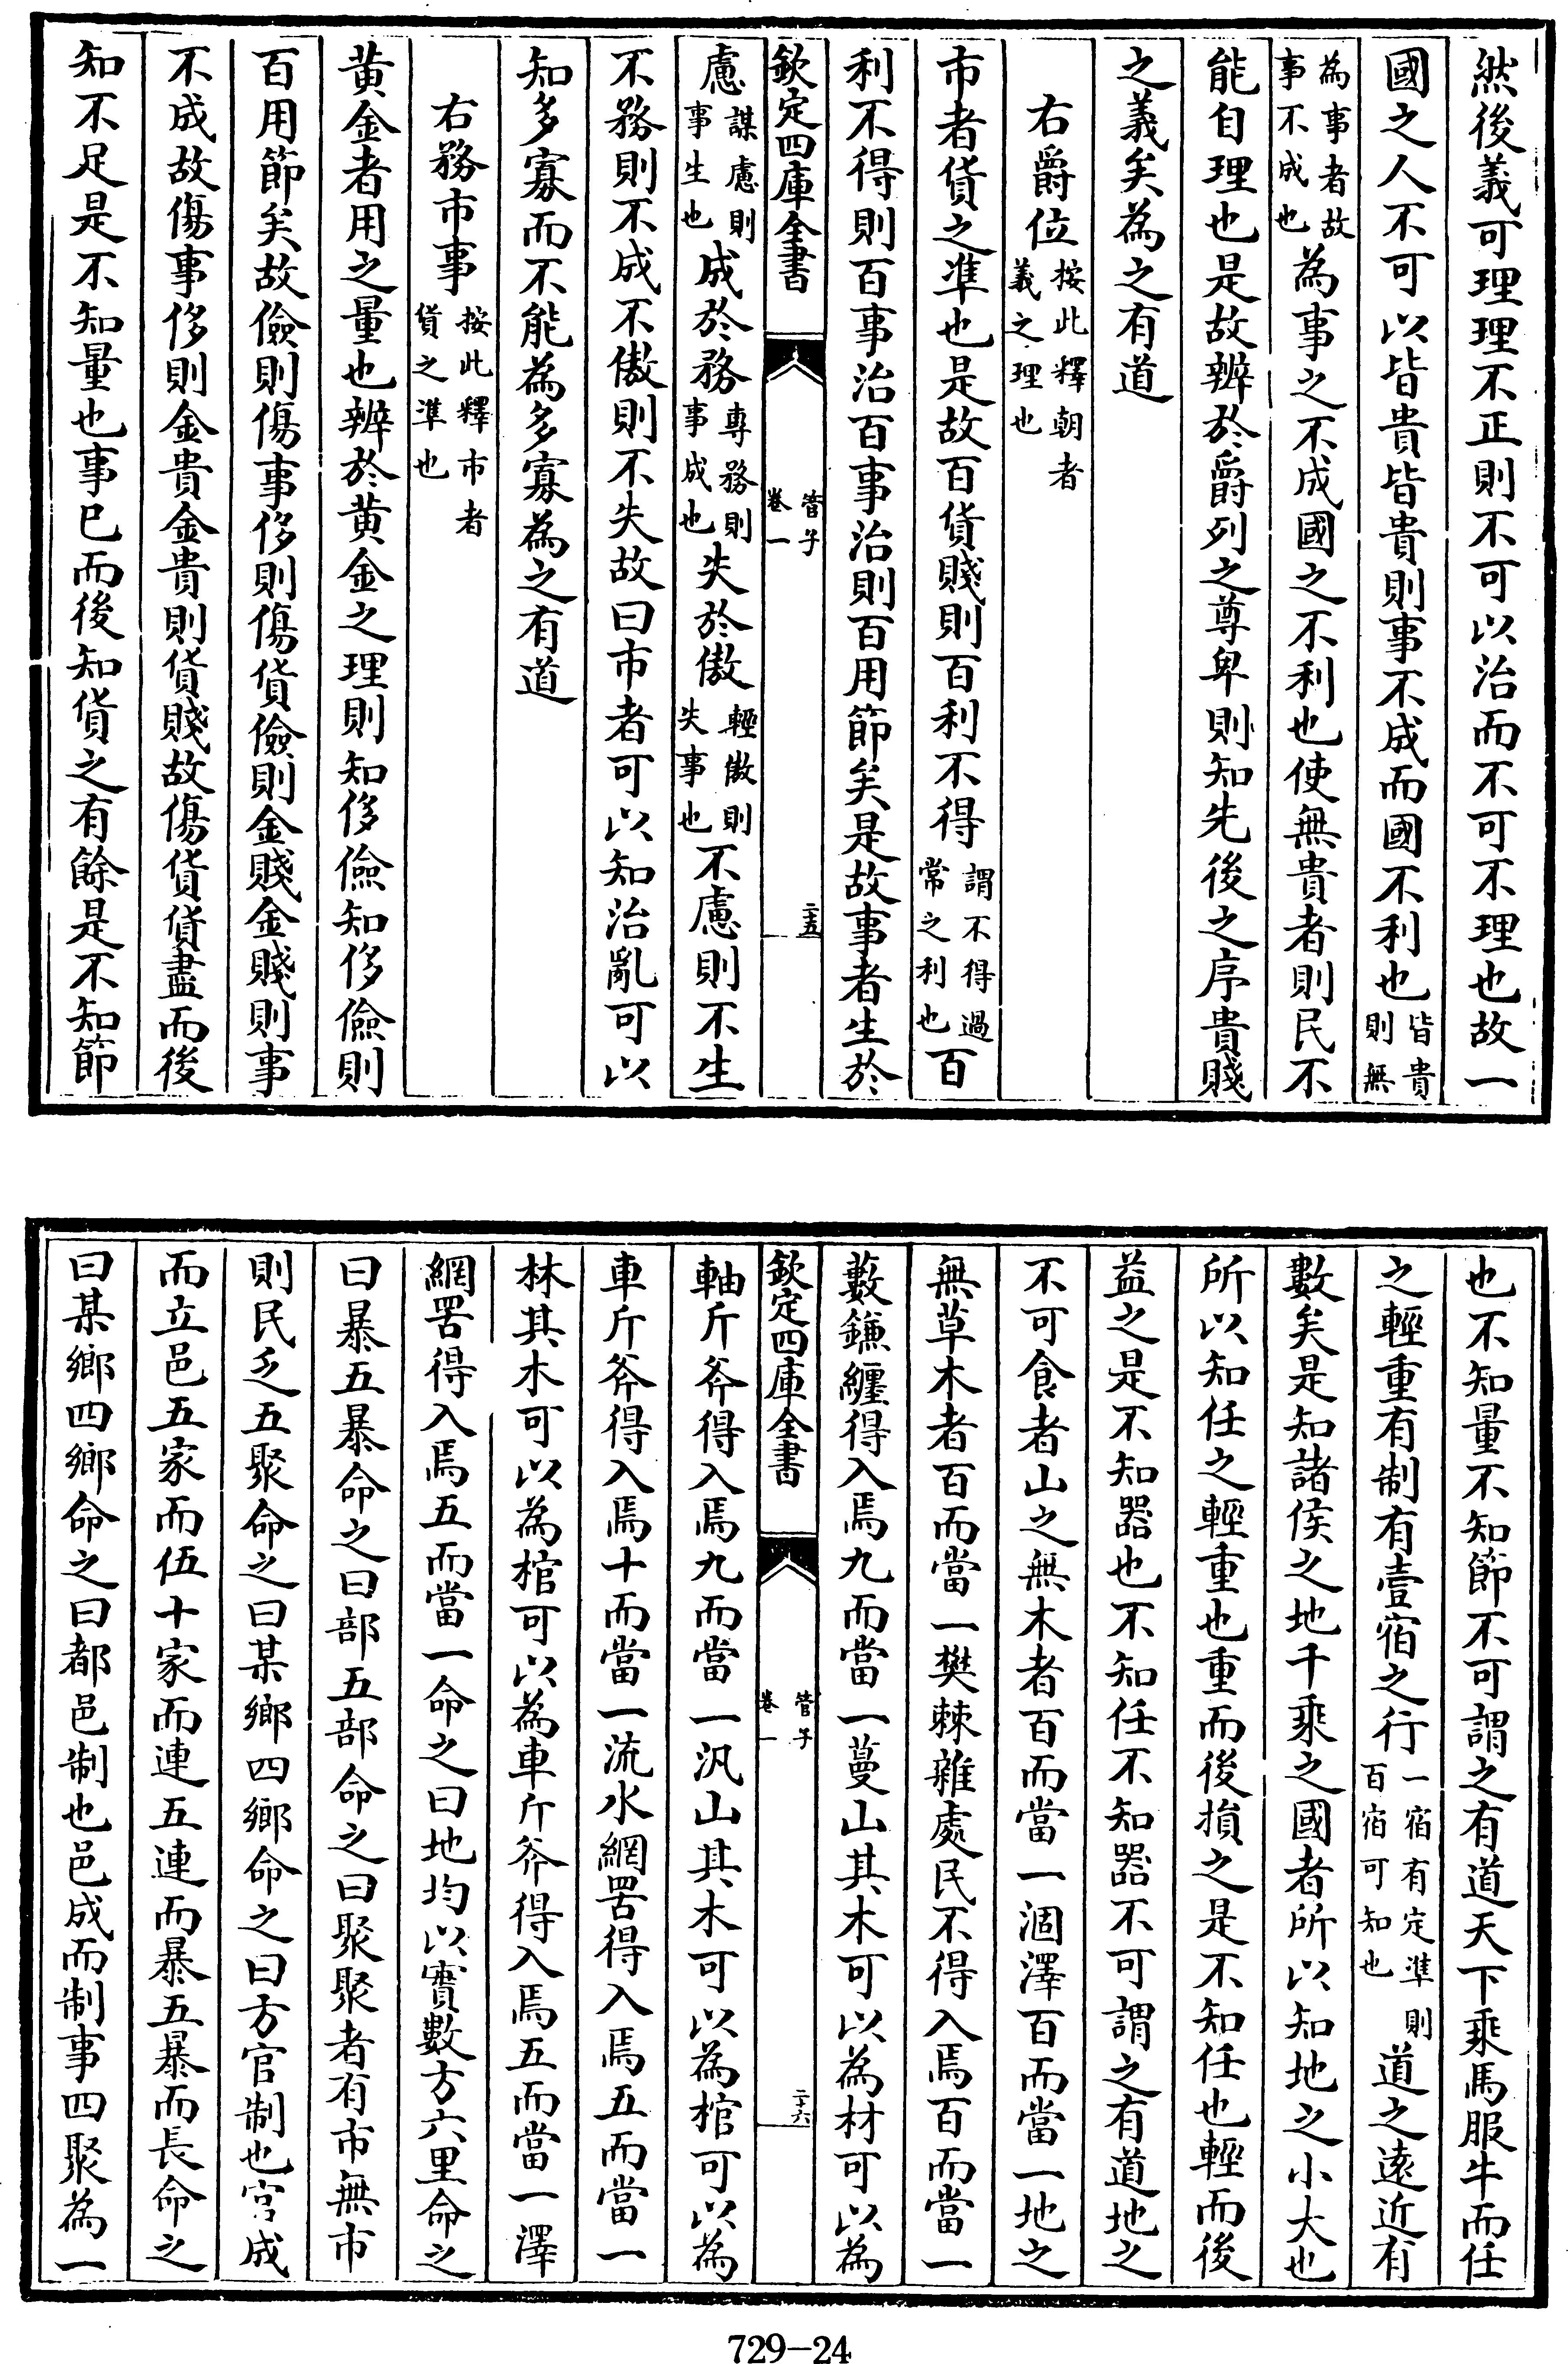 然後義可理理不正則不可以治而不可不理也故一
國之人不可以皆貴皆貴則事不成而國不利也皆貴則無
為事者故事不成也為事之不成國之不利也使無貴者則民不
能自理也是故辨於爵列之尊卑則知先後之序貴賤
之義矣為之有道
右爵位按此釋朝者義之理也
市者貨之準也是故百貨賤則百利不得謂不得過常之利也百
利不得則百事治百事治則百用節矣是故事者生於
欽定四庫全書
管子卷一
二十五
慮謀慮則事生也成於務專務則事成也失於傲輕傲則失事也不慮則不生
不務則不成不傲則不失故曰市者可以知治亂可以
知多寡而不能為多寡為之有道
右務市事按此釋市者貨之準也
黃金者用之量也辨於黃金之理則知侈儉知侈儉則
百用節矣故儉則傷事侈則傷貨儉則金賤金賤則事
不成故傷事侈則金貴金貴則貨賤故傷貨貨盡而後
知不足是不知量也事已而後知貨之有餘是不知節
也不知量不知節不可謂之有道天下乘馬服牛而任
之輕重有制有壹宿之行一宿有定準則百宿可知也道之遠近有
數矣是知諸侯之地千乘之國者所以知地之小大也
所以知任之輕重也重而後損之是不知任也輕而後
益之是不知器也不知任不知器不可謂之有道地之
不可食者山之無木者百而當一涸澤百而當一地之
無草木者百而當一樊棘雜處民不得入焉百而當一
藪鎌纏得入焉九而當一蔓山其木可以為材可以為
欽定四庫全書
管子卷一
二十六
軸斤斧得入焉九而當一汎山其木可以為棺可以為
車斤斧得入焉十而當一流水網罟得入焉五而當一
林其木可以為棺可以為車斤斧得入焉五而當一澤
網罟得入焉五而當一命之曰地均以實數方六里命之
曰暴五暴命之曰部五部命之曰聚聚者有市無市
則民乏五聚命之曰某鄉四鄉命之曰方官制也官成
而立邑五家而伍十家而連五連而暴五暴而長命之
曰某鄉四鄉命之曰都邑制也邑成而制事四聚為一
729-24